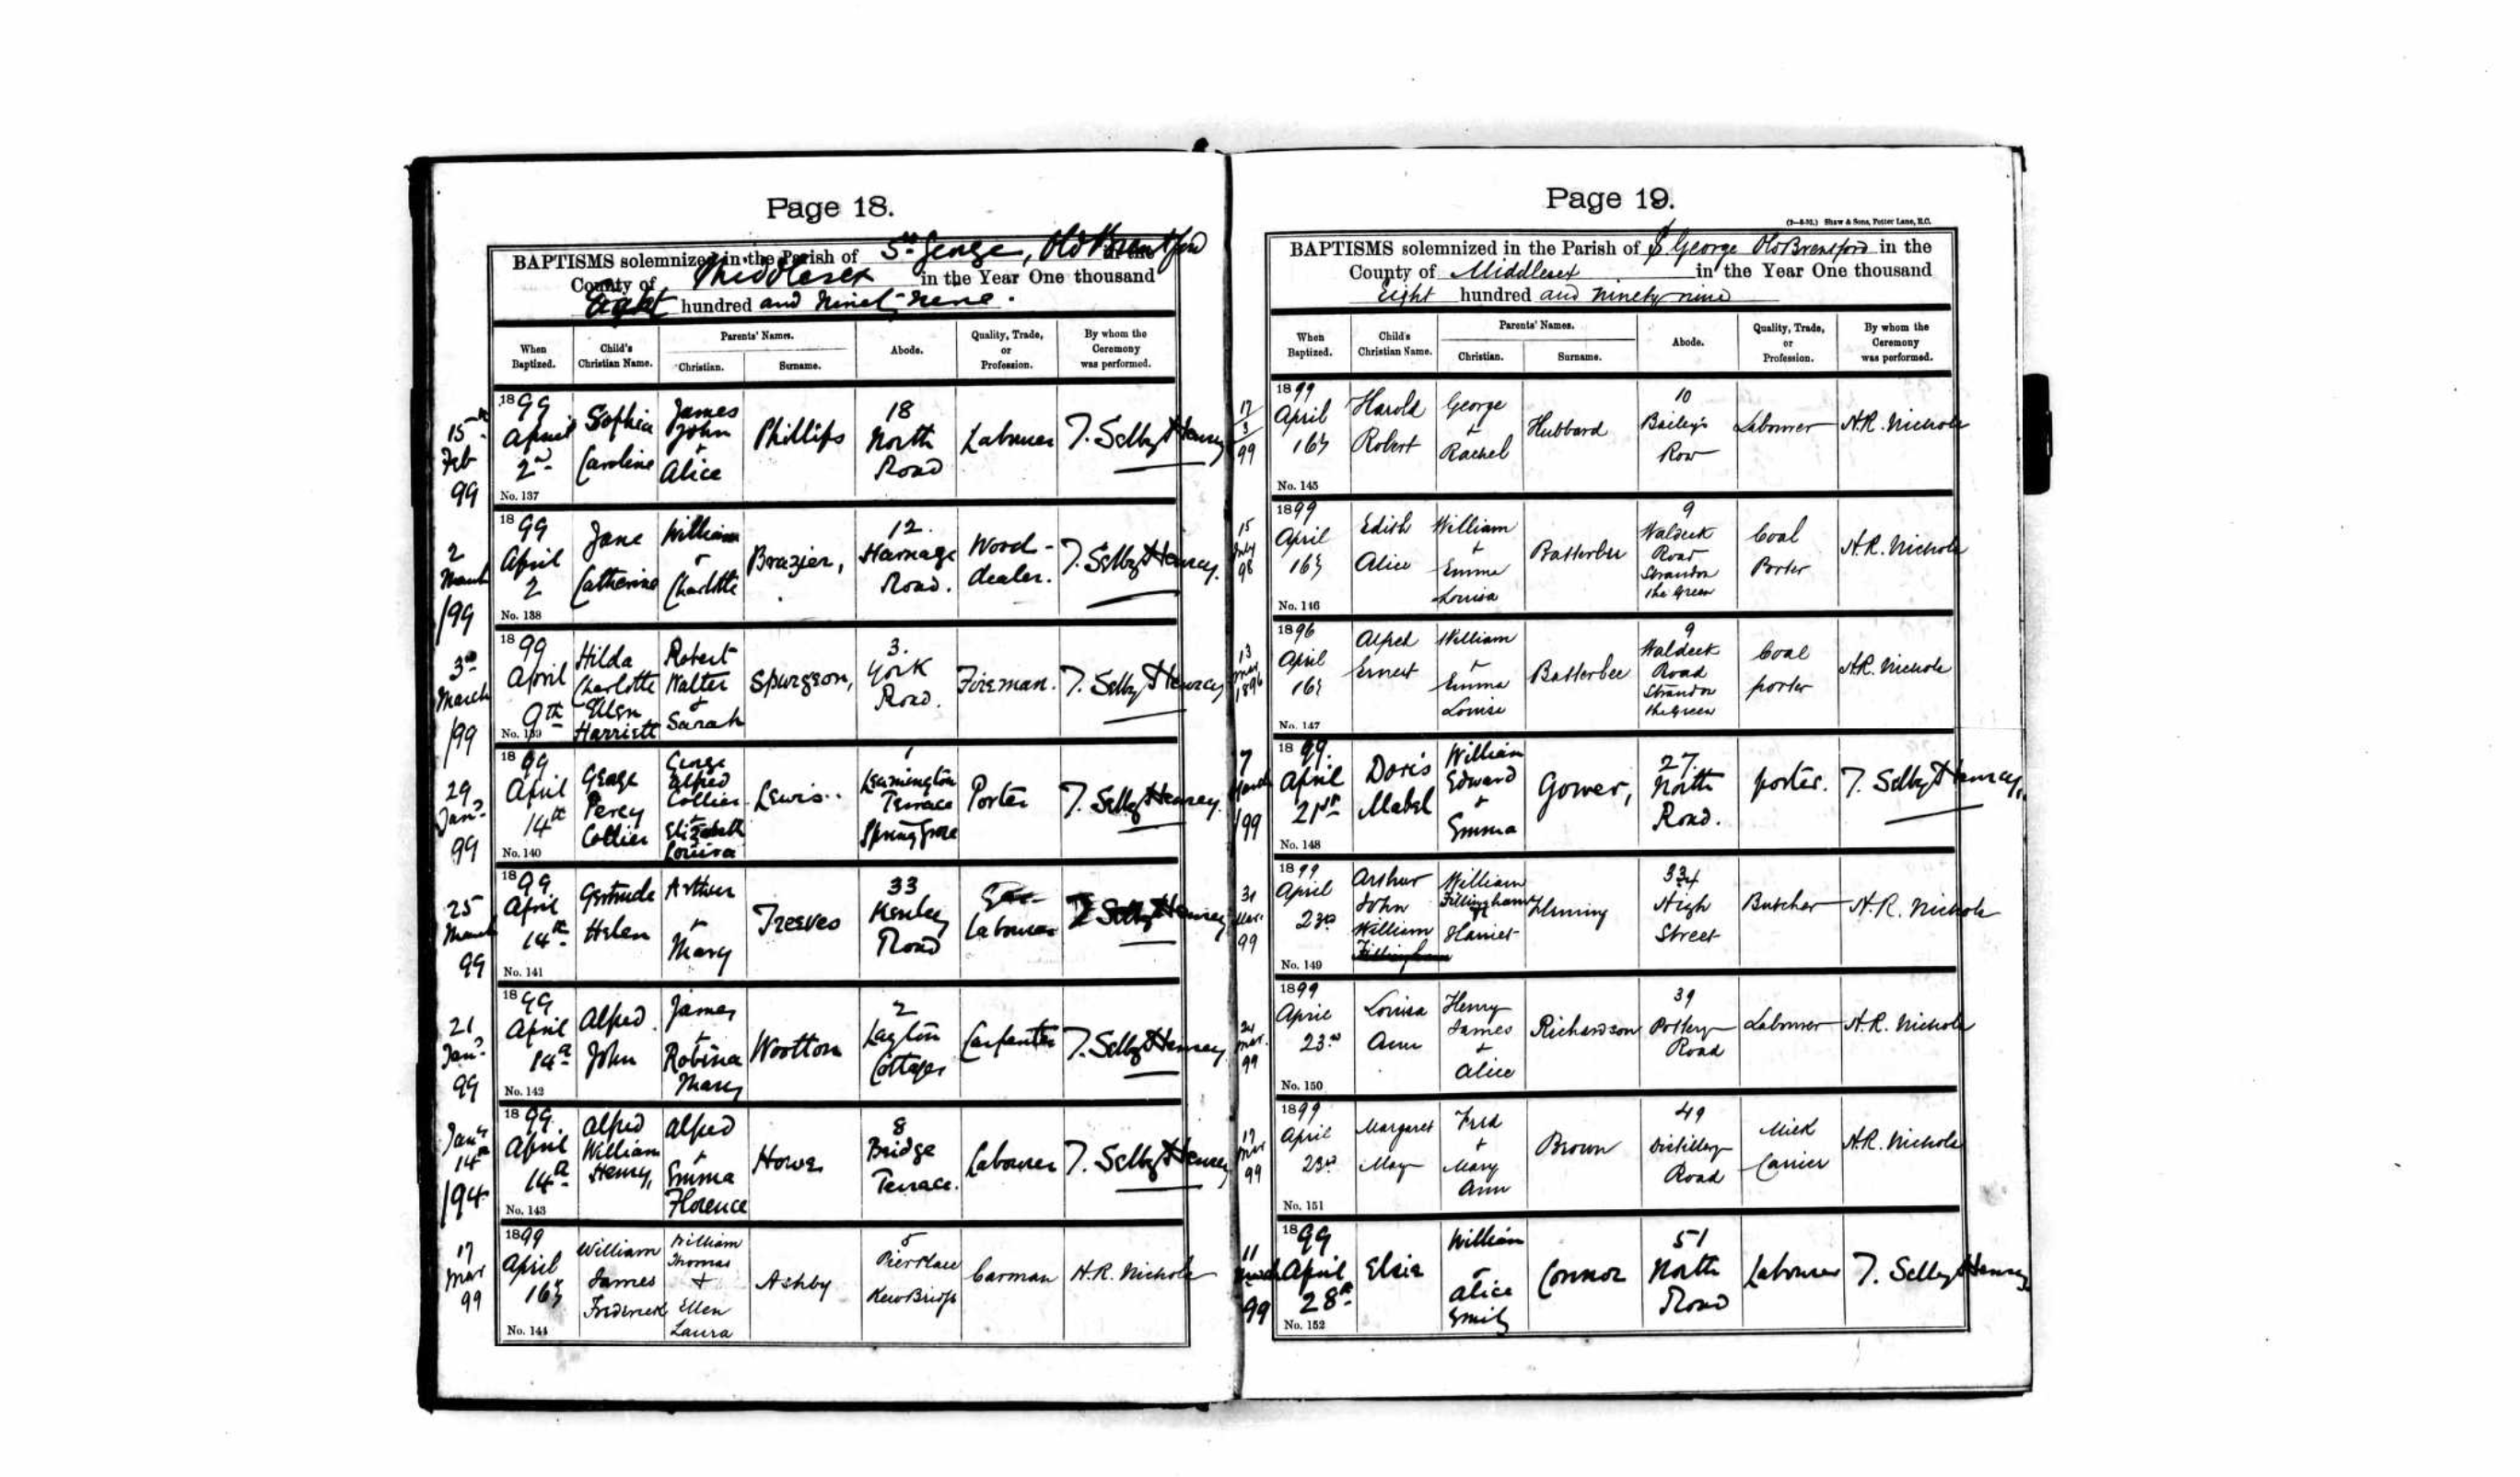 Page 18.
BAPTISMS solemnized in the Parish of St George, Old Brentford in the
County of Middlesex in the Year One thousand
Eight hundred and Ninety-nine.
When Baptized. Child's Christian Name. Parents' Names. Christian. Surname. Abode. Quality, Trade, or Profession. By whom the Ceremony was performed.
15th Feb 99
1899 April 2nd No. 137
Sophia Caroline
James John + Alice
Phillips
18 North Road
Labourer
T. Selby Henrey
2 March /99
1899 April 2 No. 138
Jane Catherine
William + Charlotte
Brazier,
12. Harnage Road.
Wood-dealer.
T. Selby Henrey.
3rd March /99
1899 April 9th No. 139
Hilda Charlotte Ellen Harriett
Robert Walter + Sarah
Spurgeon,
3. York Road.
Fireman.
T. Selby Henrey
29 Jany 99
1899 April 14th No. 140
George Percy Collier
George Alfred Collier + Elizabeth Louisa
Lewis.
1 Leamington Terrace Spring Grove
Porter
T. Selby Henrey.
25 March 99
1899. April 14th No. 141
Gertrude Helen
Arthur + Mary
Treeves
33 Henley Road
Labourer
T Selby Henrey
21 Jany 99
1899 April 14th No. 142
Alfred John
James + Robina Mary
Wootton
2 Layton Cottages
Carpenter
T. Selby Henrey
Jany 14th /94
1899. April 14th No. 143
Alfred William Henry,
Alfred + Emma Florence
Howe
8 Bridge Terrace.
Labourer
T. Selby Henrey
17 Mar 99
1899 April 16th No. 144
William James Frederick
William Thomas + Ellen Laura
Ashby
5 Pier Place Kew Bridge
Carman
H.R. Nichols
Page 19.
Shaw & Sons, Fetter Lane, E.C.
BAPTISMS solemnized in the Parish of St George Old Brentford in the
County of Middlesex in the Year One thousand
Eight hundred and ninety nine
When Baptized. Child's Christian Name. Parents' Names. Christian. Surname. Abode. Quality, Trade, or Profession. By whom the Ceremony was performed.
17/3 99
1899 April 16th No. 145
Harold Robert
George + Rachel
Hubbard
10 Bailey's Row
Labourer
H.R. Nichols
15 July 98
1899 April 16th No. 146
Edith Alice
William + Emma Louisa
Batterbee
9 Waldeck Road Strand on the Green
Coal Porter
H.R. Nichols
13 Mar 1896
1896 April 16th No. 147
Alfred Ernest
William + Emma Louise
Batterbee
9 Waldeck Road Strand on the Green
Coal porter
H.R. Nichols
7 March /99
1899. April 21st No. 148
Doris Mabel
William Edward + Emma
Gower,
27. North Road.
porter.
T. Selby Henrey,
31 Mar. 99
1899 April 23rd No. 149
Arthur John William Fillingham
William Fillingham + Harriet
Fleming
334 High Street
Butcher
H.R. Nichols
24 Mar. 99
1899 April 23rd No. 150
Louisa Ann
Henry James + Alice
Richardson
39 Pottery Road
Labourer
H.R. Nichols
17 Mar 99
1899 April 23rd No. 151
Margaret May
Fred + Mary Ann
Brown
49 Distillery Road
Milk Carrier
H.R. Nichols
11 March 99
1899 April 28th No. 152
Elsie
William + Alice Emily
Connor
51 North Road
Labourer
T. Selby Henrey